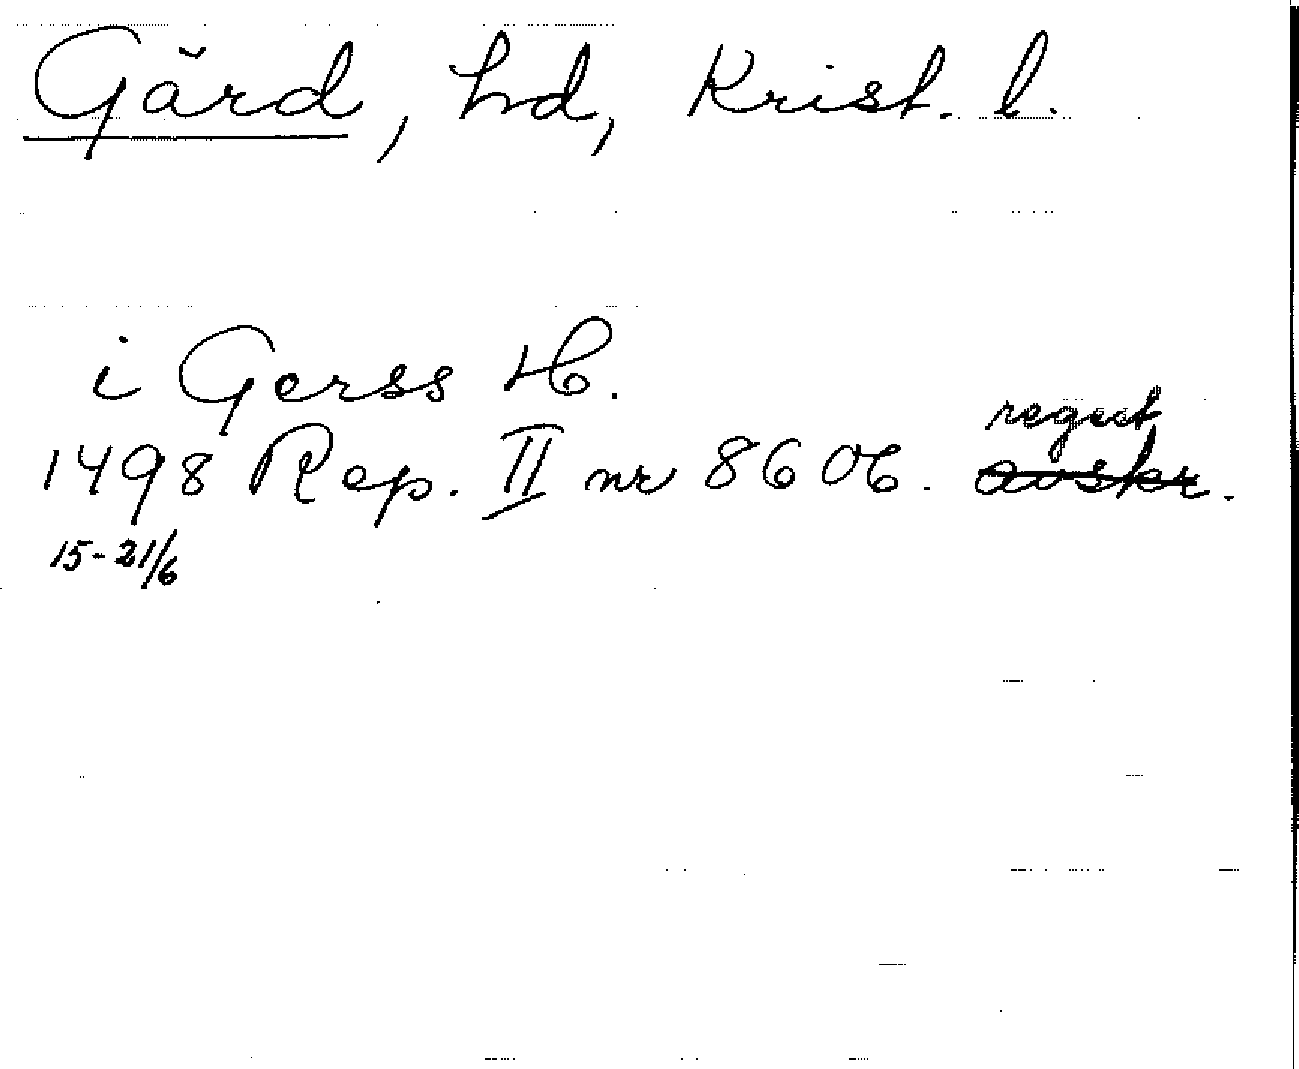 Gärd, hd, Krist. l.
i Gerss H.
regest
1498 Rep. II nr 8606. avskr.
15-21/6